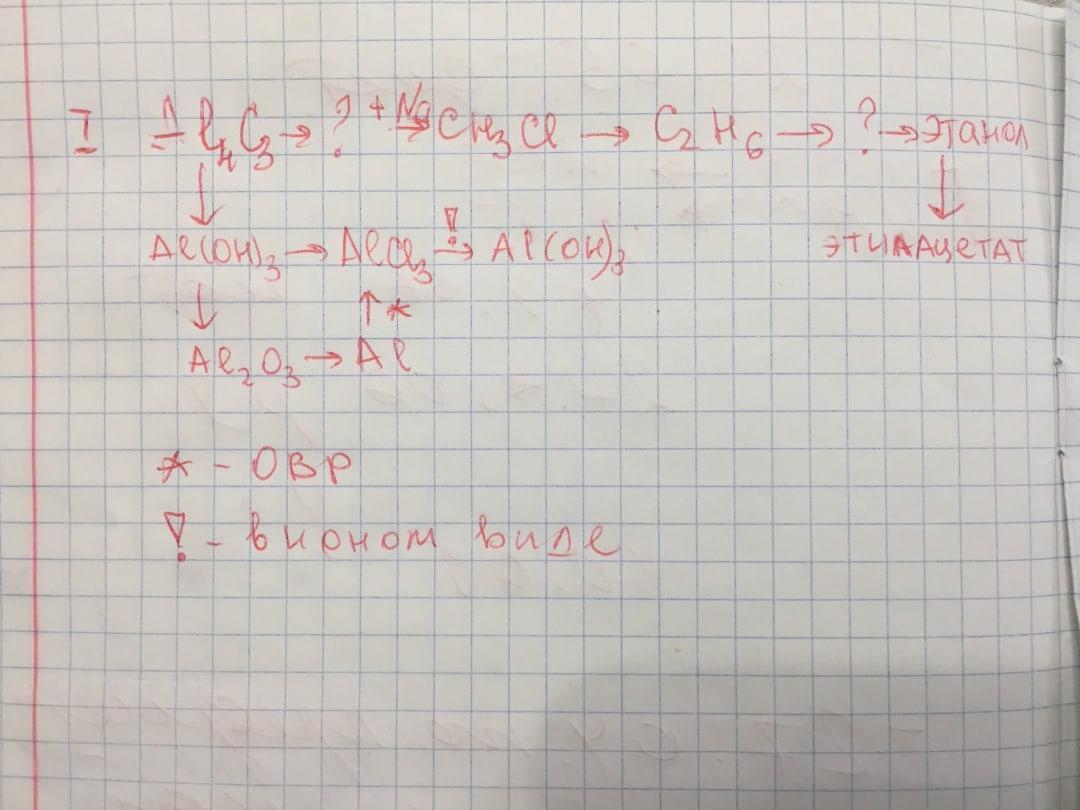 I Al₄C₃ → ? +Na → CH₃Cl → C₂H₆ → ? → ЭТАНОЛ
↓ ↓
Al(OH)₃ → AlCl₃ !→ Al(OH)₃ ЭТИЛАЦЕТАТ
↓ ↑*
Al₂O₃ → Al
* - ОВР
! - в ионом виде